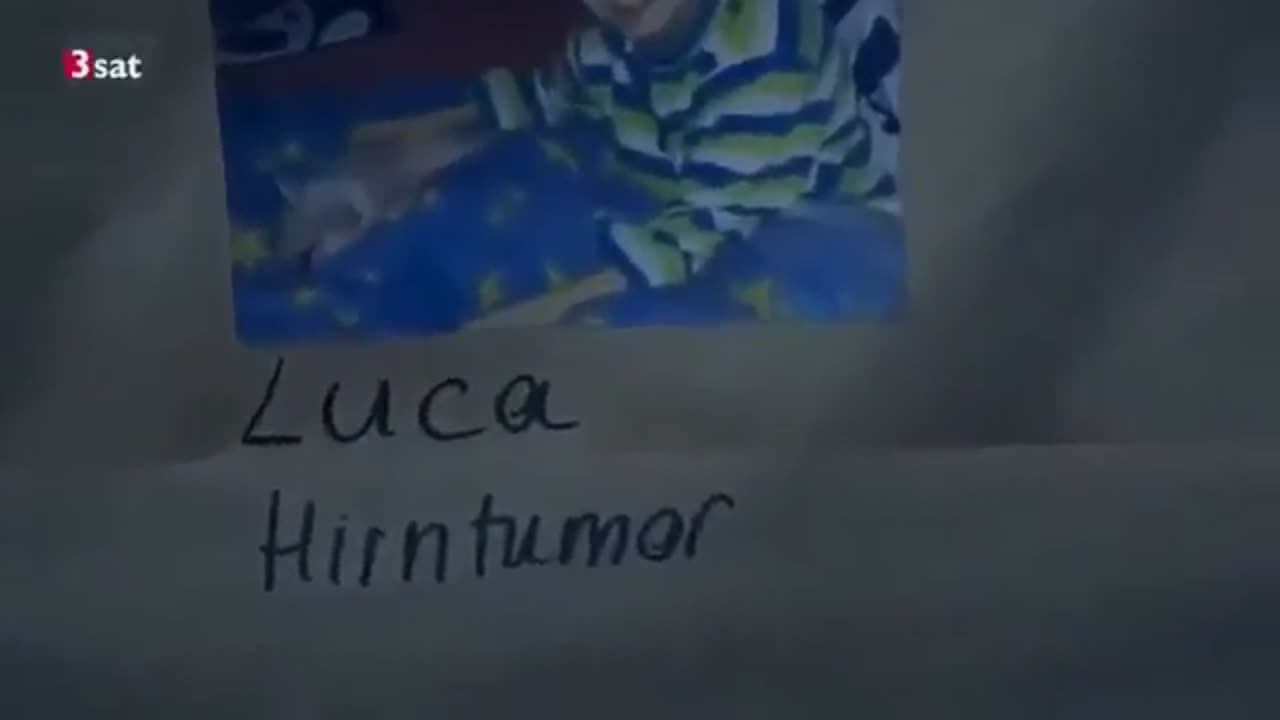 3sat
Luca
Hirntumor